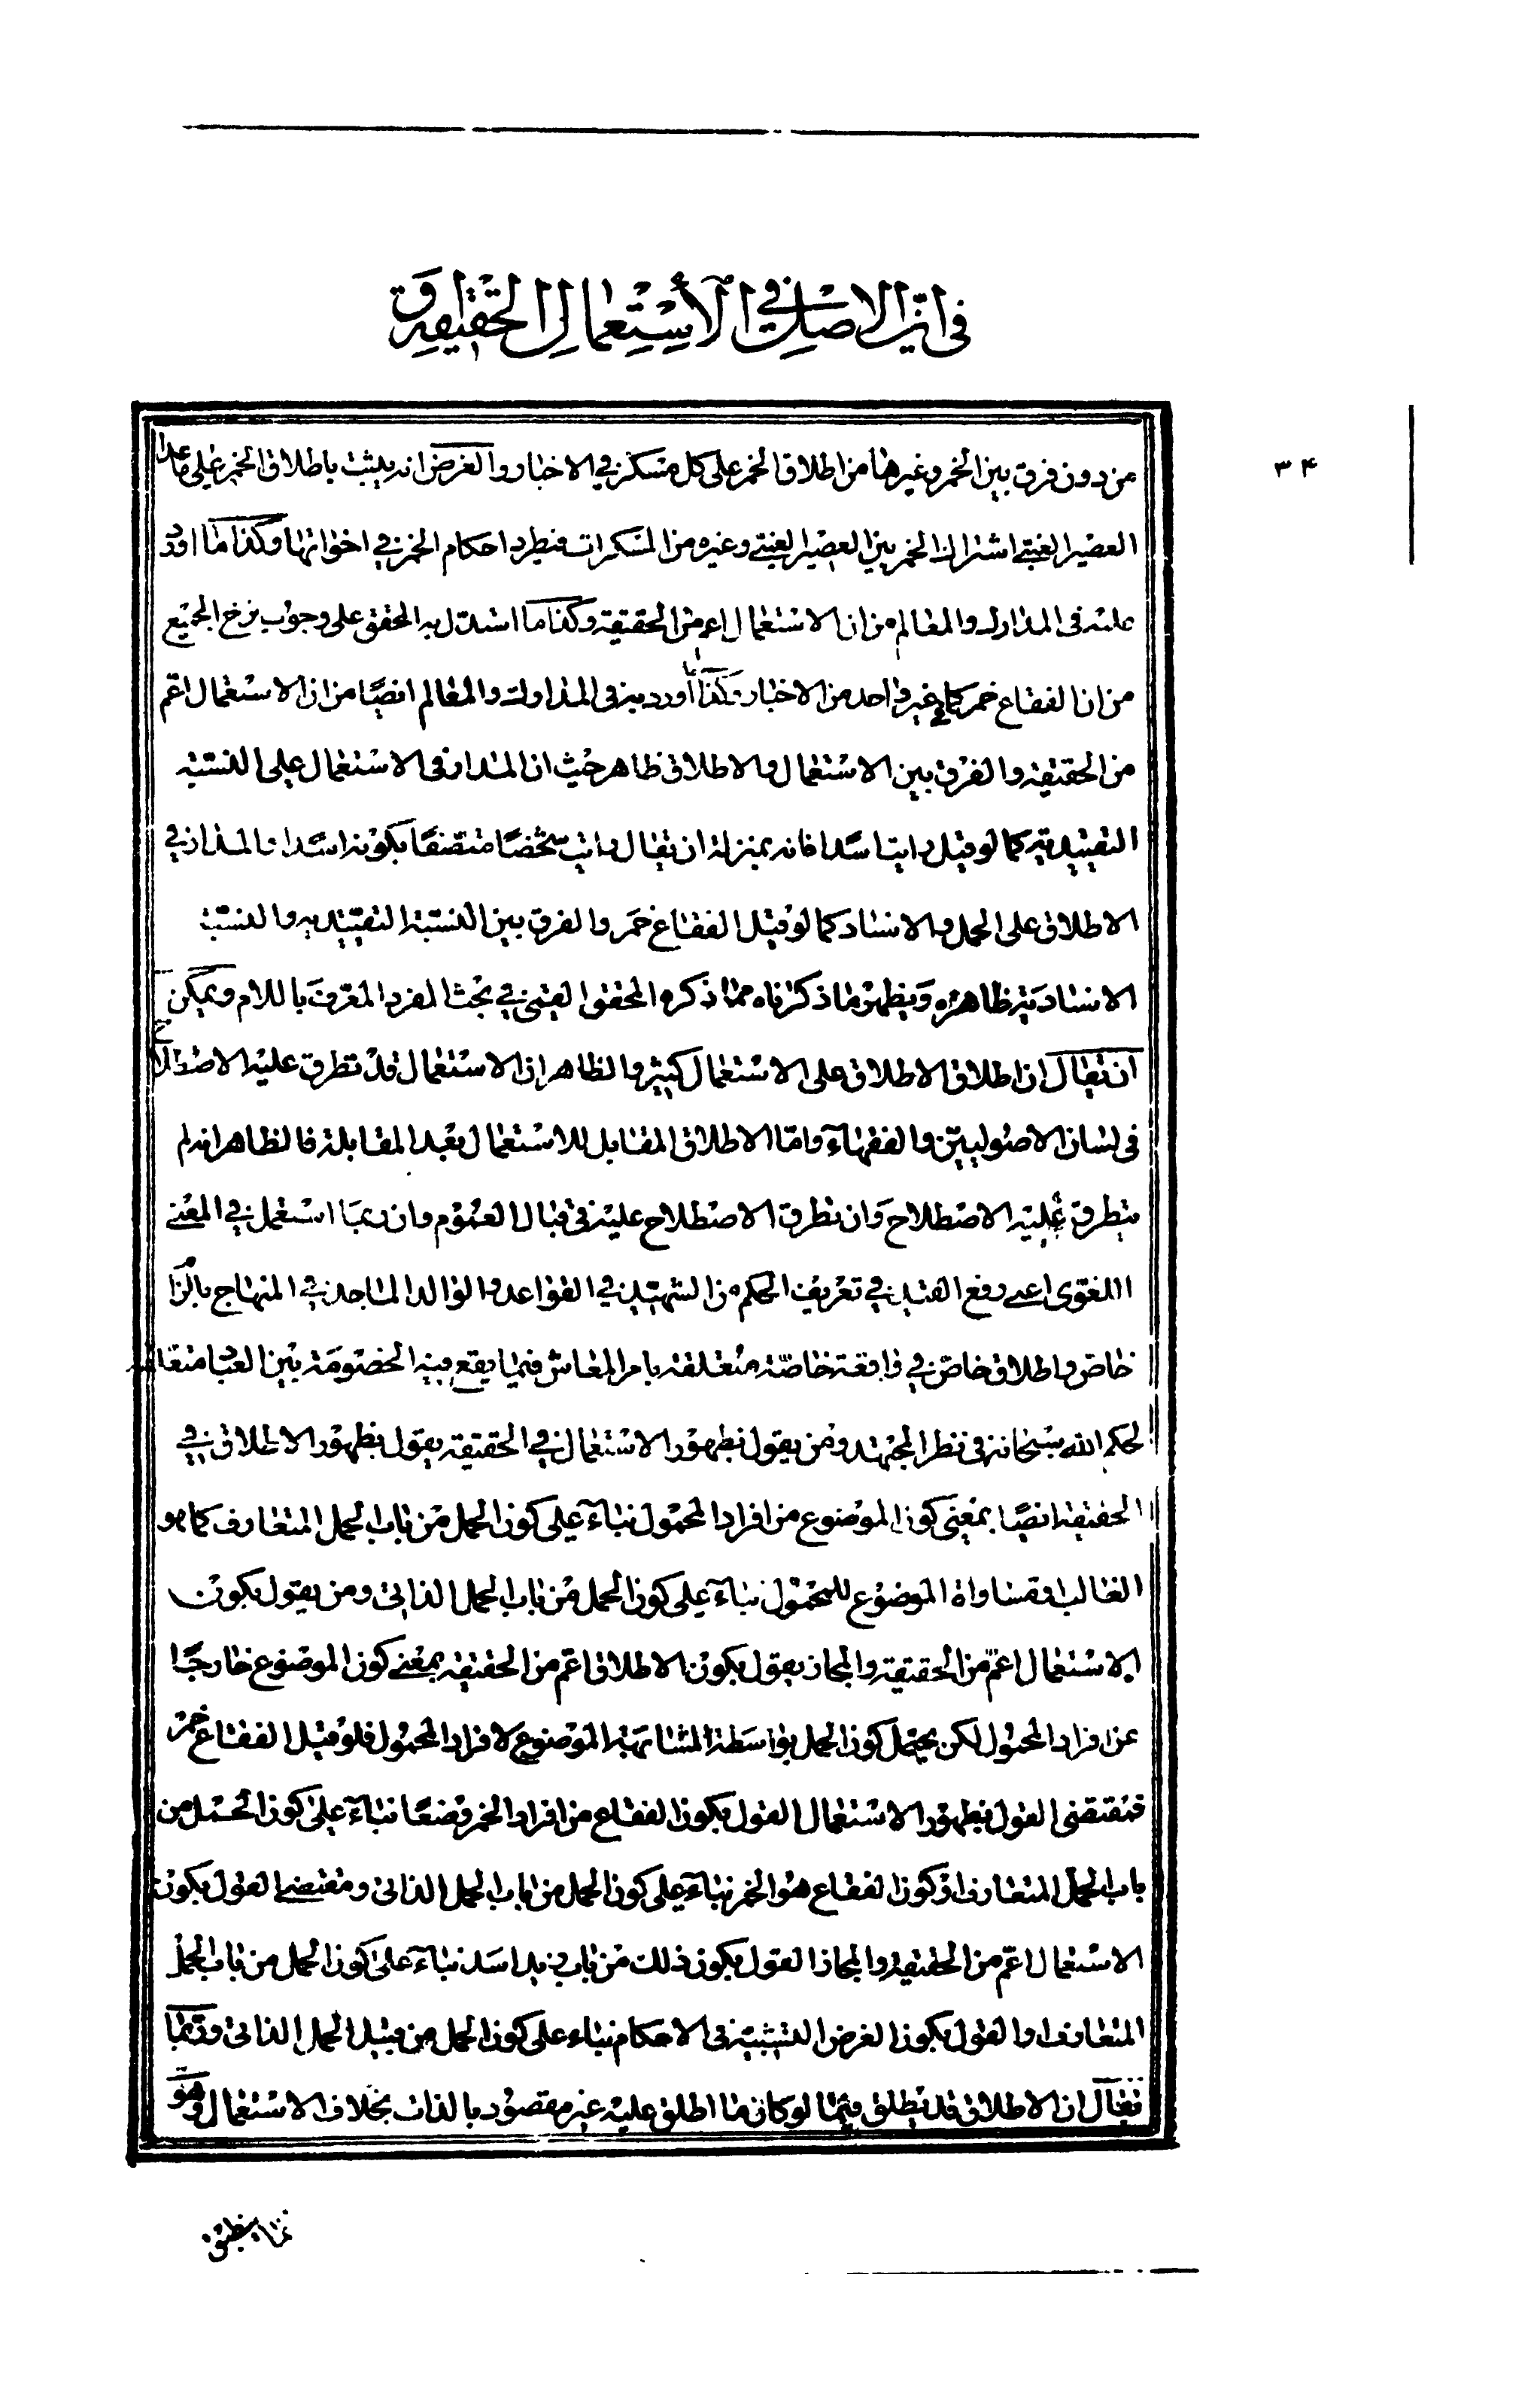 في ان الاصل في الأستعمال الحقيقة
٣۴
من دون فرق بين الخمر وغيرها من اطلاق الخمر على كل مسكر في الاخبار والغرض انه يثبت باطلاق الخمر على ما عدا
العصير العنبي اشتراك الخمر بين العصير العنبي وغيره من المسكرات فيطرد احكام الخمر في اخواتها وكذا ما اورد
عليه في المدارك والمعالم من ان الاستعمال اعم من الحقيقة وكذا ما استدل به المحقق على وجوب نزح الجميع
من ان الفقاع خمر كما في غير واحد من الاخبار وكذا ما أورد به في المدارك والمعالم ايضا من ان الاستعمال اعم
من الحقيقة والفرق بين الاستعمال والاطلاق ظاهر حيث ان المدار في الاستعمال على النسبة
التقييدية كما لو قيل رايت اسدا فانه بمنزلة ان يقال رايت شخصا متصفا بكونه اسدا والمدار في
الاطلاق على الحمل والاسناد كما لو قيل الفقاع خمر والفرق بين النسبة التقييديه والنسبة
الاسناديّة ظاهره ويظهر ما ذكرناه مما ذكره المحقق القمي في بحث المفرد المعرف باللام ويمكن
ان يقال ان اطلاق الاطلاق على الاستعمال كثير والظاهر ان الاستعمال قد تطرق عليه الاصطلاح
في لسان الاصوليين والفقهاء واما الاطلاق المقابل للاستعمال بعد المقابلة فالظاهر انه لم
يتطرق عليه الاصطلاح وان تطرق الاصطلاح عليه في قبال العموم وان ربما استعمل في المعنى
اللغوي اعني رفع القيد في تعريف الحكم من الشهيد في القواعد والوالد الماجد في المنهاج بالزام
خاص واطلاق خاص في واقعة خاصة متعلقة بامر المعاش فيما يقع فيه الخصومة بين العباد
لحكم الله سبحانه في نظر المجتهد ومن يقول بظهور الاستعمال في الحقيقة يقول بظهور الاطلاق في
الحقيقة ايضا بمعنى كون الموضوع من افراد المحمول بناء على كون الحمل من باب الحمل المتعارف كما هو
الغالب او مساواة الموضوع للمحمول بناء على كون الحمل من باب الحمل الذاتي ومن يقول بكون
الاستعمال اعم من الحقيقة والمجاز يقول بكون الاطلاق اعم من الحقيقة بمعنى كون الموضوع خارجا
عن افراد المحمول لكن يحتمل كون الحمل بواسطة المشابهة الموضوع لافراد المحمول فلو قيل الفقاع خمر
فمقتضى القول بظهور الاستعمال القول بكون الفقاع من افراد الخمر وضعا بناء على كون الحمل من
باب الحمل المتعارف او كون الفقاع هو الخمر بناء على كون الحمل من باب الحمل الذاتي ومقتضى القول بكون
الاستعمال اعم من الحقيقة والمجاز القول بكون ذلك من باب زيد اسد بناء على كون الحمل من باب الحمل
المتعارف او القول بكون الغرض التشبيه في الاحكام بناء على كون الحمل من قبيل الحمل الذاتي وربما
يقال ان الاطلاق قد يطلق فيما لو كان ما اطلق عليه غير مقصود بالذات بخلاف الاستعمال وهو